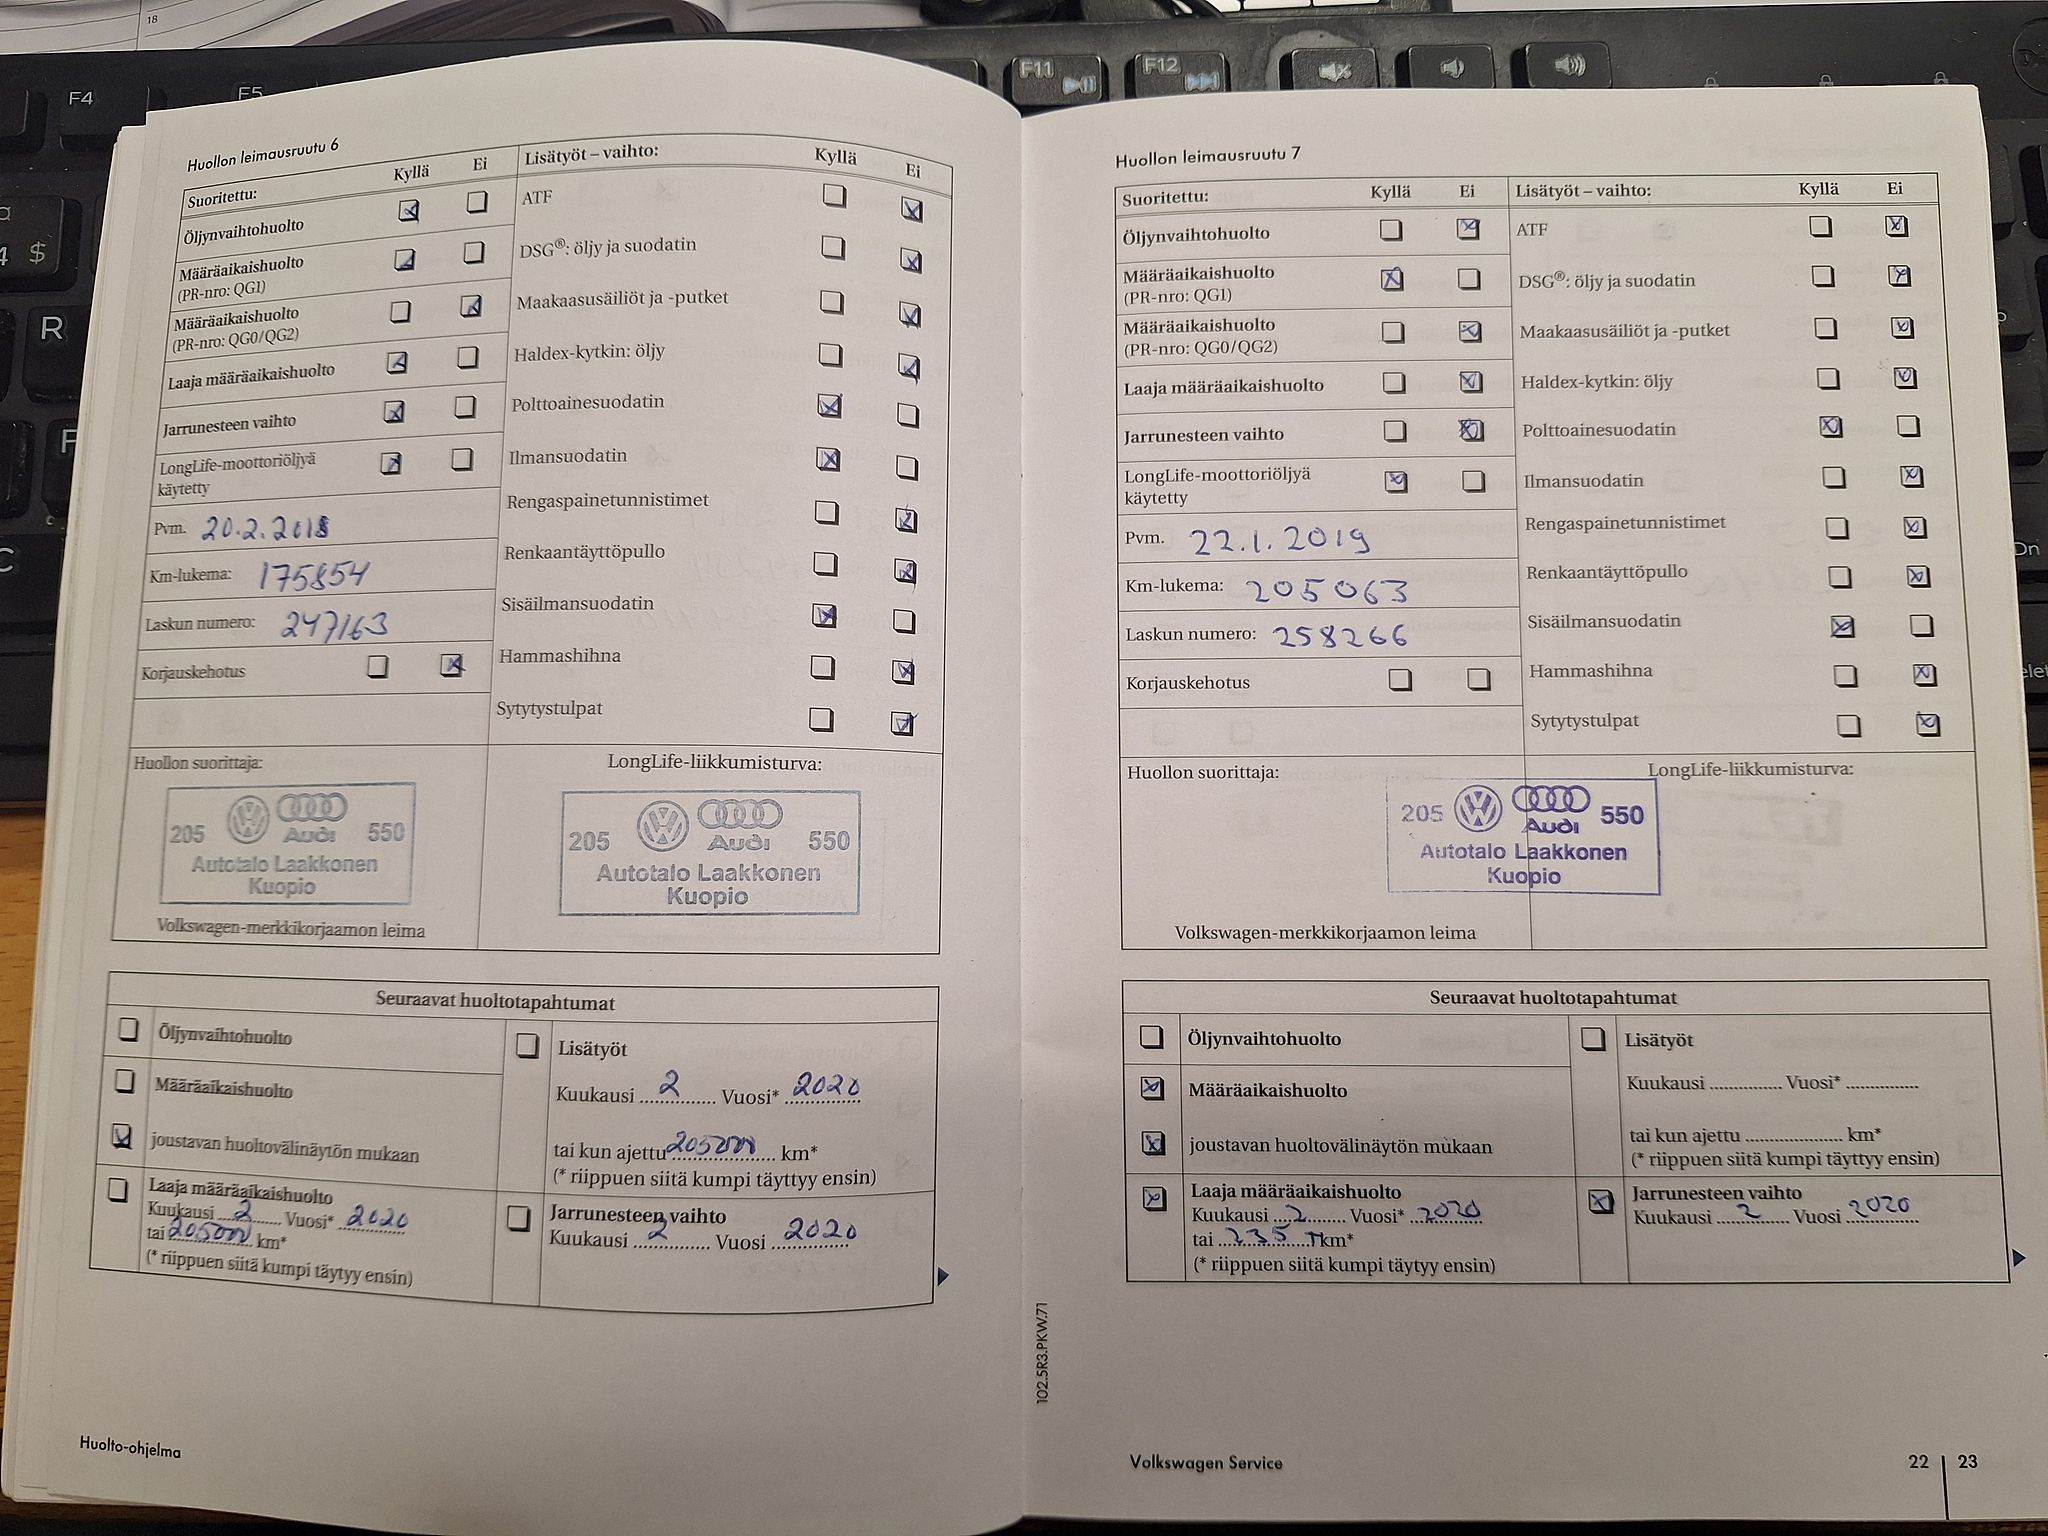 18
F4
F5
F11
F12
4 $
R
F
C
Huollon leimausruutu 6
Suoritettu: Kyllä Ei
Öljynvaihtohuolto
Määräaikaishuolto
(PR-nro: QG1)
Määräaikaishuolto
(PR-nro: QG0/QG2)
Laaja määräaikaishuolto
Jarrunesteen vaihto
LongLife-moottoriöljyä
käytetty
Pvm. 20.2.2018
Km-lukema: 175854
Laskun numero: 247163
Korjauskehotus
Lisätyöt – vaihto: Kyllä Ei
ATF
DSG®: öljy ja suodatin
Maakaasusäiliöt ja -putket
Haldex-kytkin: öljy
Polttoainesuodatin
Ilmansuodatin
Rengaspainetunnistimet
Renkaantäyttöpullo
Sisäilmansuodatin
Hammashihna
Sytytystulpat
Huollon suorittaja:
205 Audi 550
Autotalo Laakkonen
Kuopio
Volkswagen-merkkikorjaamon leima
LongLife-liikkumisturva:
205 Audi 550
Autotalo Laakkonen
Kuopio
Seuraavat huoltotapahtumat
Öljynvaihtohuolto
Määräaikaishuolto
joustavan huoltovälinäytön mukaan
Laaja määräaikaishuolto
Kuukausi 2 Vuosi* 2020
tai 205000 km*
(* riippuen siitä kumpi täytyy ensin)
Lisätyöt
Kuukausi 2 Vuosi* 2020
tai kun ajettu 205000 km*
(* riippuen siitä kumpi täyttyy ensin)
Jarrunesteen vaihto
Kuukausi 2 Vuosi 2020
Huolto-ohjelma
Huollon leimausruutu 7
Suoritettu: Kyllä Ei
Öljynvaihtohuolto
Määräaikaishuolto
(PR-nro: QG1)
Määräaikaishuolto
(PR-nro: QG0/QG2)
Laaja määräaikaishuolto
Jarrunesteen vaihto
LongLife-moottoriöljyä
käytetty
Pvm. 22.1.2019
Km-lukema: 205063
Laskun numero: 258266
Korjauskehotus
Lisätyöt – vaihto: Kyllä Ei
ATF
DSG®: öljy ja suodatin
Maakaasusäiliöt ja -putket
Haldex-kytkin: öljy
Polttoainesuodatin
Ilmansuodatin
Rengaspainetunnistimet
Renkaantäyttöpullo
Sisäilmansuodatin
Hammashihna
Sytytystulpat
Huollon suorittaja:
LongLife-liikkumisturva:
205 Audi 550
Autotalo Laakkonen
Kuopio
Volkswagen-merkkikorjaamon leima
Seuraavat huoltotapahtumat
Öljynvaihtohuolto
Määräaikaishuolto
joustavan huoltovälinäytön mukaan
Laaja määräaikaishuolto
Kuukausi 2 Vuosi* 2020
tai 235 T km*
(* riippuen siitä kumpi täytyy ensin)
Lisätyöt
Kuukausi Vuosi*
tai kun ajettu km*
(* riippuen siitä kumpi täyttyy ensin)
Jarrunesteen vaihto
Kuukausi 2 Vuosi 2020
102.5R3.PKW.71
Volkswagen Service
22 23